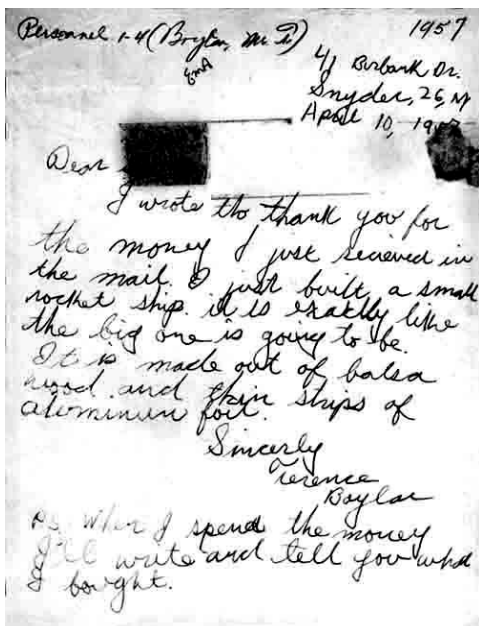 Personnel 1-4 (Boylan, Mr T.)
1957
41 Burbank Dr.
Snyder, 26, N
April 10, 1957
Dear
I wrote tho thank you for
the money I just recieved in
the mail. I just built a small
rocket ship. it is exactly like
the big one is going to be.
It is made out of balsa
wood and thin strips of
aluminum foil.
Sincerly
Terence
Boylan
P.S. When I spend the money
I'll write and tell you what
I bought.